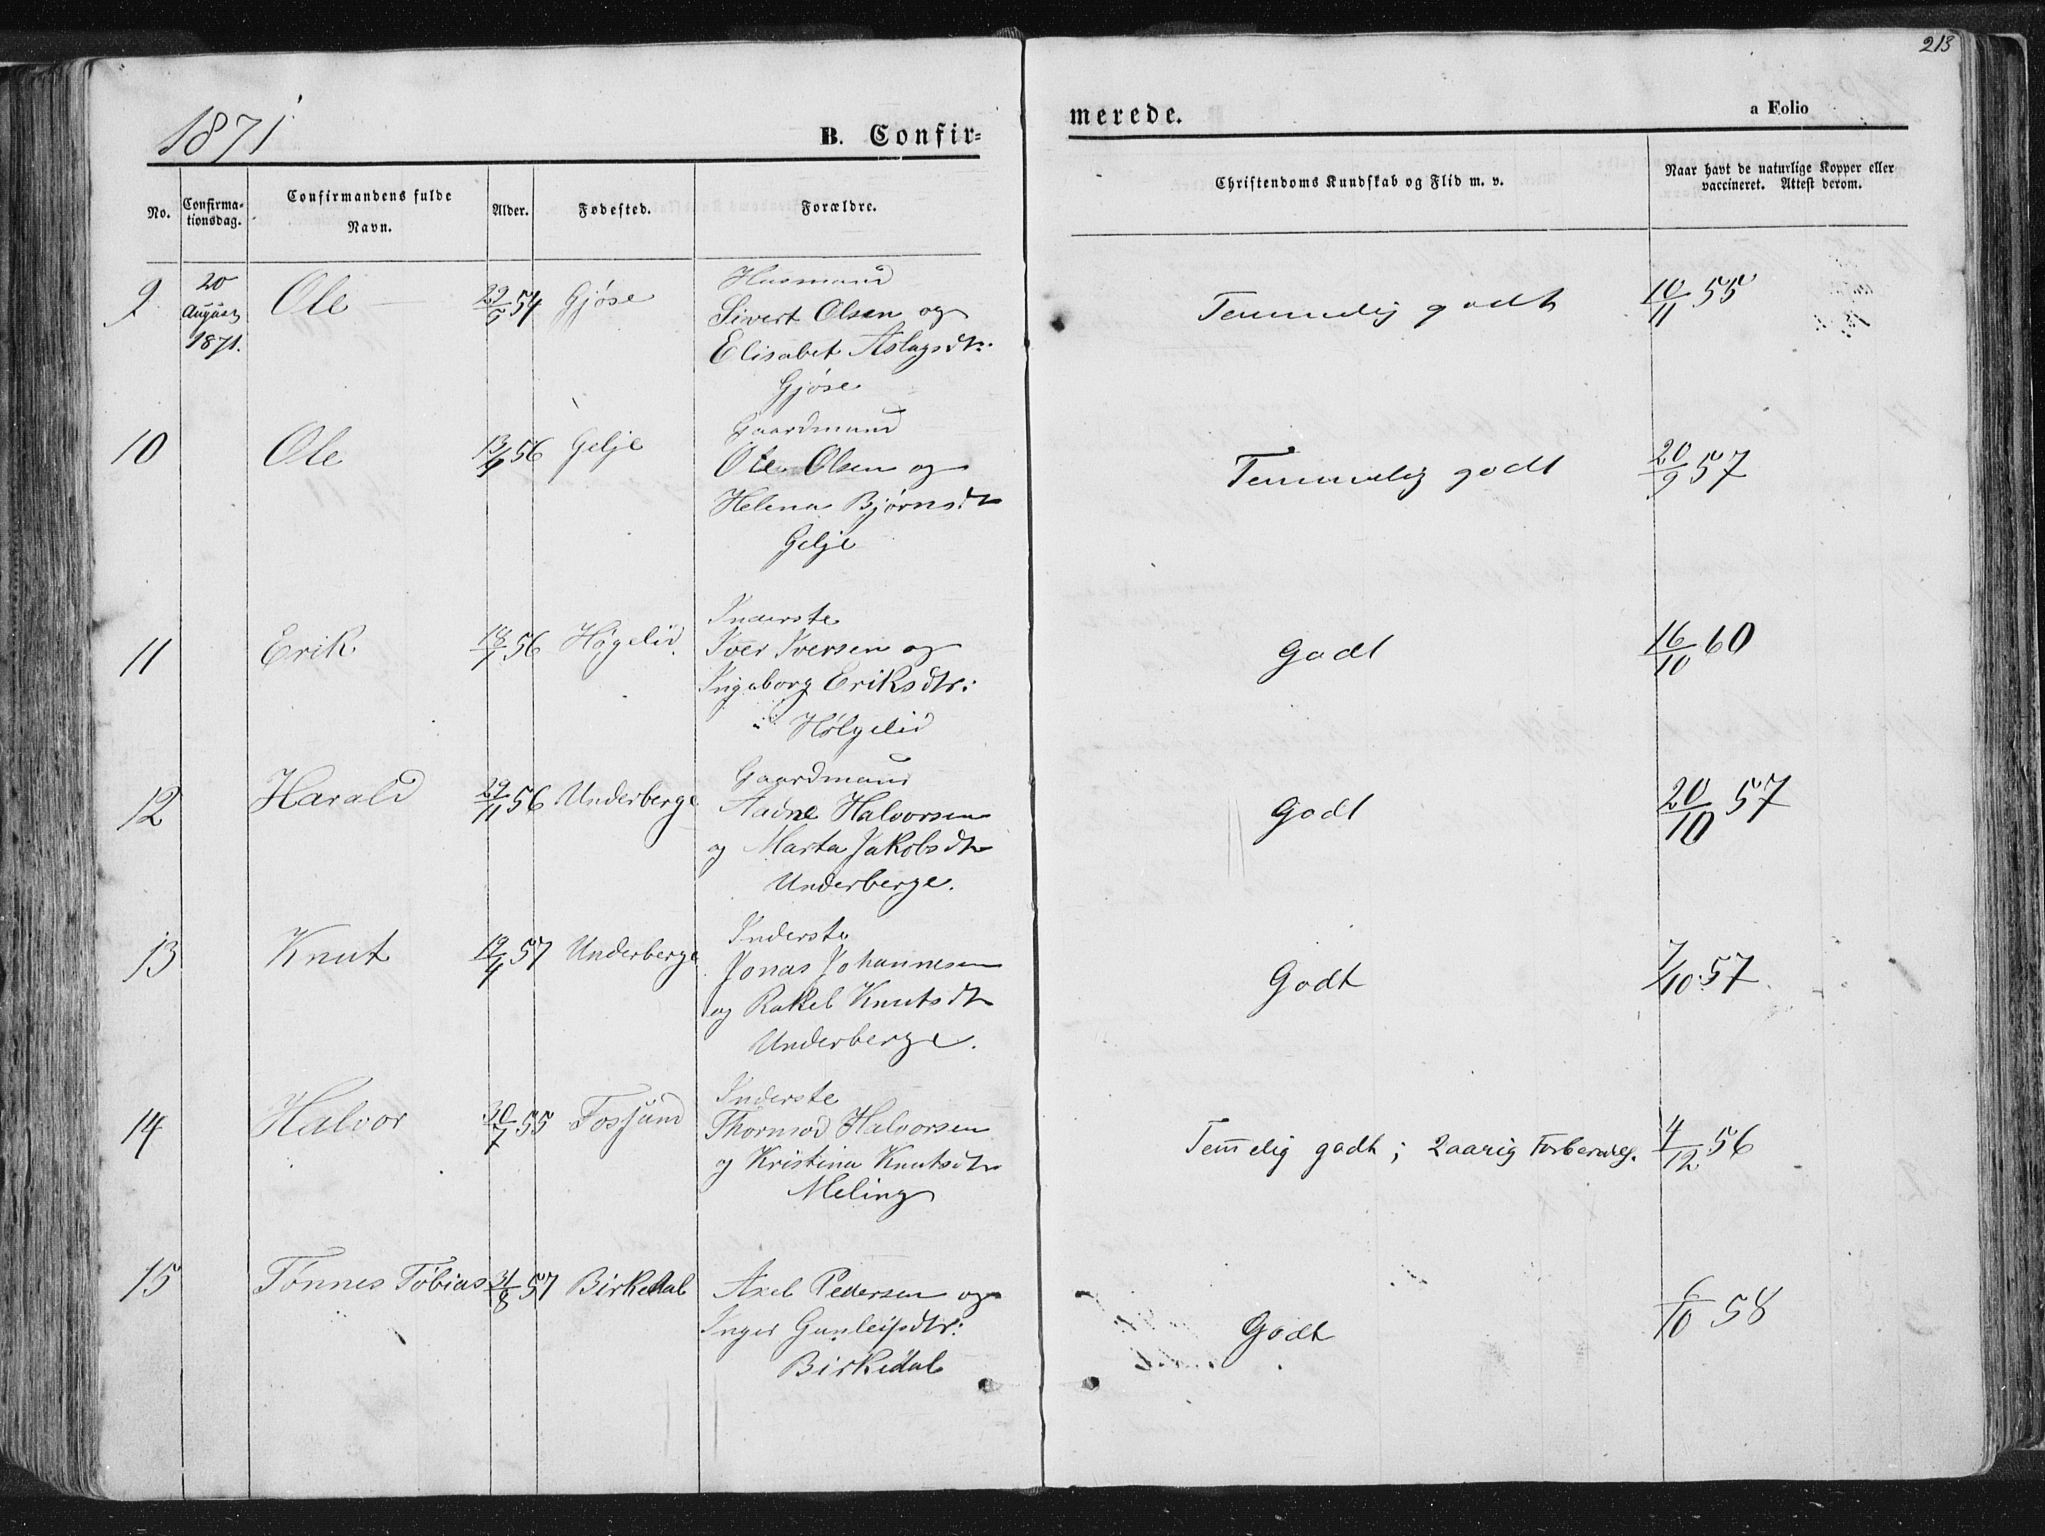 213
1871
B. Confir-
merede.
a Folio
No.
Confirma-
tionsdag.
Confirmandens fulde
Navn.
Alder.
Fødested.
Forældre.
Christendoms Kundskab og Flid m. v.
Naar havt de naturlige Kopper eller
vaccineret. Attest derom.
9
20
August
1871.
Ole
29/5 54
Gjøse
Huusmand
Sivert Olsen og
Elisabet Aslagsdtr.
Gjøse
Temmelig godt
10/11 55
10
Ole
13/9 56
Gelje
Gaardmand
Ole Olsen og
Helena Bjørnsdtr
Gelje
Temmelig godt
20/9 57
11
Erik
18/1 56
Høgelid
Inderste
Iver Iversen og
Ingeborg Eriksdtr:
i Hølgelid
Godt
16/10 60
12
Harald
29/11 56
Underberge
Gaardmand
Aadne Halvorsen
og Marta Jakobsdtr
Underberge.
Godt
20/10 57
13
Knut
19/4 57
Underberge
Inderste
Jonas Johannesen
og Rakel Knutsdtr
Underberge.
Godt
7/10 57
14
Halvor
30/7 55
Fossand
Inderste
Thormod Halvorsen
og Kristina Knutsdtr
Meling
Tem̅elig godt; 2aarig Forbered.
4/12 56
15
Tønnes Tobias
31/8 57
Birkedal
Axel Pedersen og
Inger Gunleifsdtr:
Birkedal
Godt
6/10 58